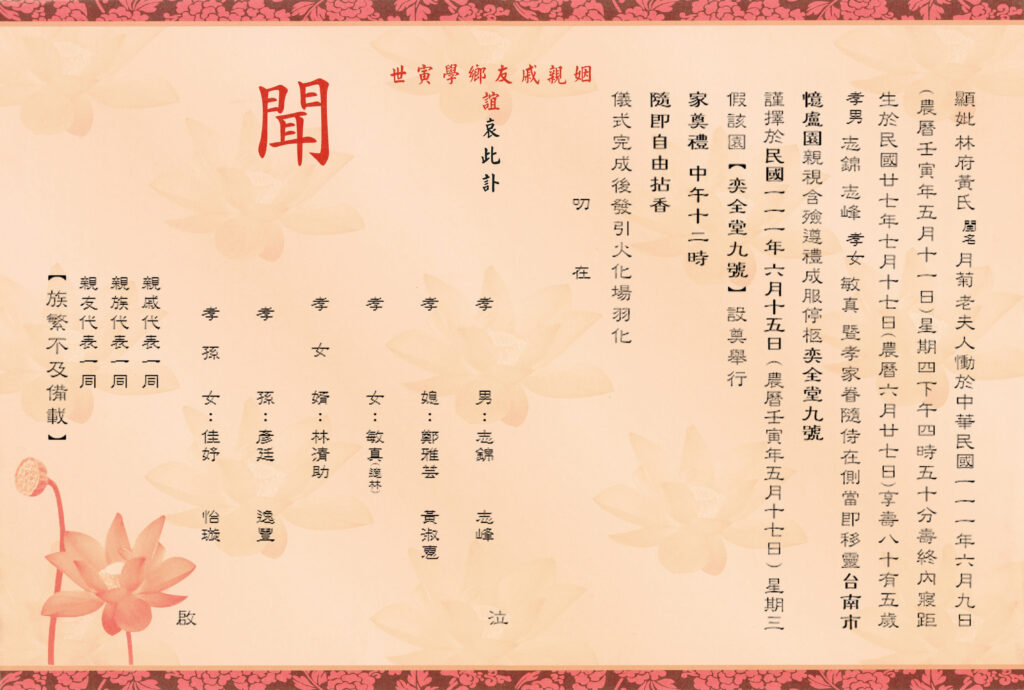 顯妣林府黃氏 閨名 月菊老夫人慟於中華民國一一一年六月九日
(農曆壬寅年五月十一日)星期四下午四時五十分壽終內寢距
生於民國廿七年七月十七日(農曆六月廿七日)享壽八十有五歲
孝男 志錦 志峰 孝女 敏真 暨孝家眷隨侍在側當即移靈台南市
憶盧園親視含殮遵禮成服停柩奕全堂九號
謹擇於民國一一一年六月十五日(農曆壬寅年五月十七日)星期三
假該園【奕全堂九號】設奠舉行
家奠禮 中午十二時
隨即自由拈香
儀式完成後發引火化場羽化
叨 在
姻親戚友鄉學寅世
誼哀此訃
聞
孝 男:志錦 志峰 泣
孝 媳:鄭雅芸 黃淑惠
孝 女:敏真(適林)
孝 女 婿:林清助
孝 孫:彥廷 逸豐
孝 孫 女:佳妤 怡璇 啟
親戚代表一同
親族代表一同
親友代表一同
【族繁不及備載】